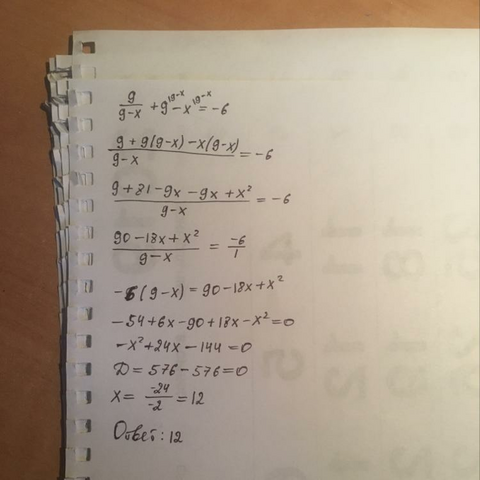 9/(9-x) + 9^(19-x) - x^(19-x) = -6
(9+9(9-x)-x(9-x))/(9-x) = -6
(9+81-9x-9x+x²)/(9-x) = -6
(90-18x+x²)/(9-x) = -6/1
-6(9-x) = 90-18x+x²
-54+6x-90+18x-x²=0
-x²+24x-144=0
D=576-576=0
x= -24/-2 =12
Ответ: 12